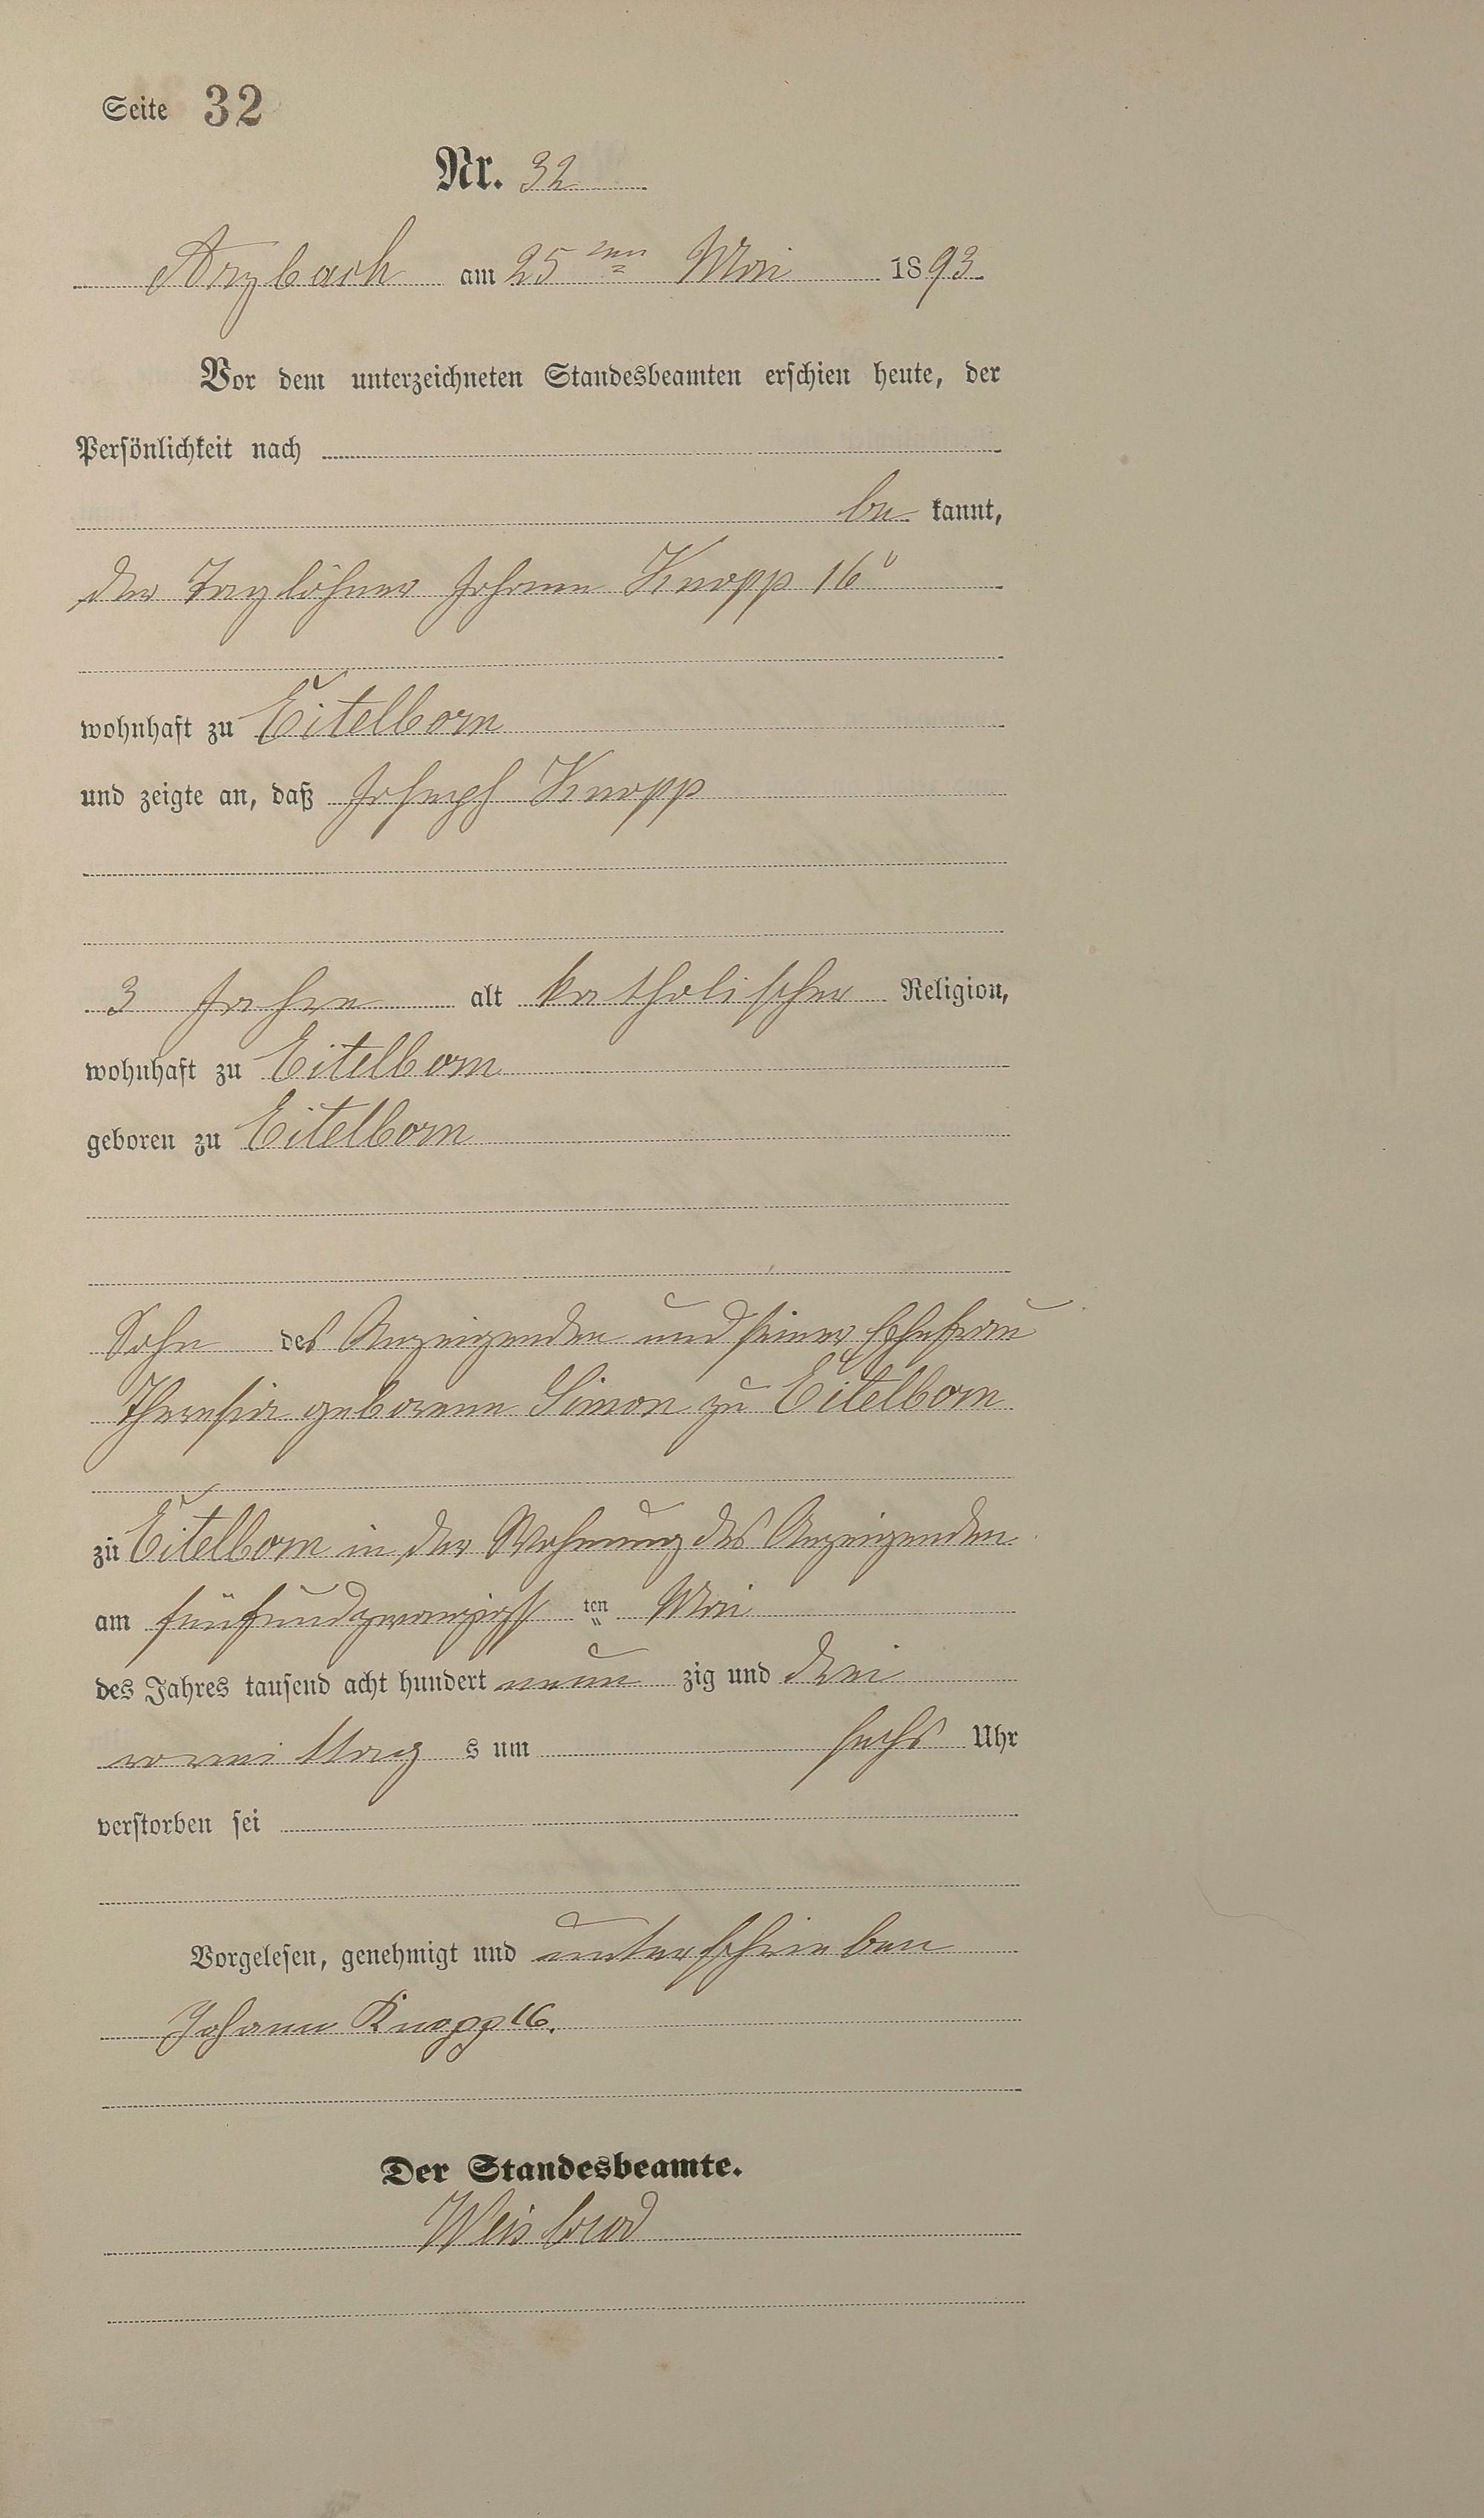 Seite 32
Nr. 32
Arzbach am 25ten Mai 1893
Vor dem unterzeichneten Standesbeamten erschien heute, der
Persönlichkeit nach
be kannt,
der Taglöhner Johann Knopp 16r
wohnhaft zu Eitelborn
und zeigte an, daß Joseph Knopp
3 Jahre alt katholischer Religion,
wohnhaft zu Eitelborn
geboren zu Eitelborn
Sohn des Anzeigenden und seiner Ehefrau
Theresia geborene Simon zu Eitelborn
zu Eitelborn in der Wohnung des Anzeigenden
am fünfundzwanzigsten Mai
des Jahres tausend acht hundert neun zig und drei
vormittag s um sechs Uhr
verstorben sei
Vorgelesen, genehmigt und unterschrieben
Johann Knopp 16.
Der Standesbeamte.
Weisbrod